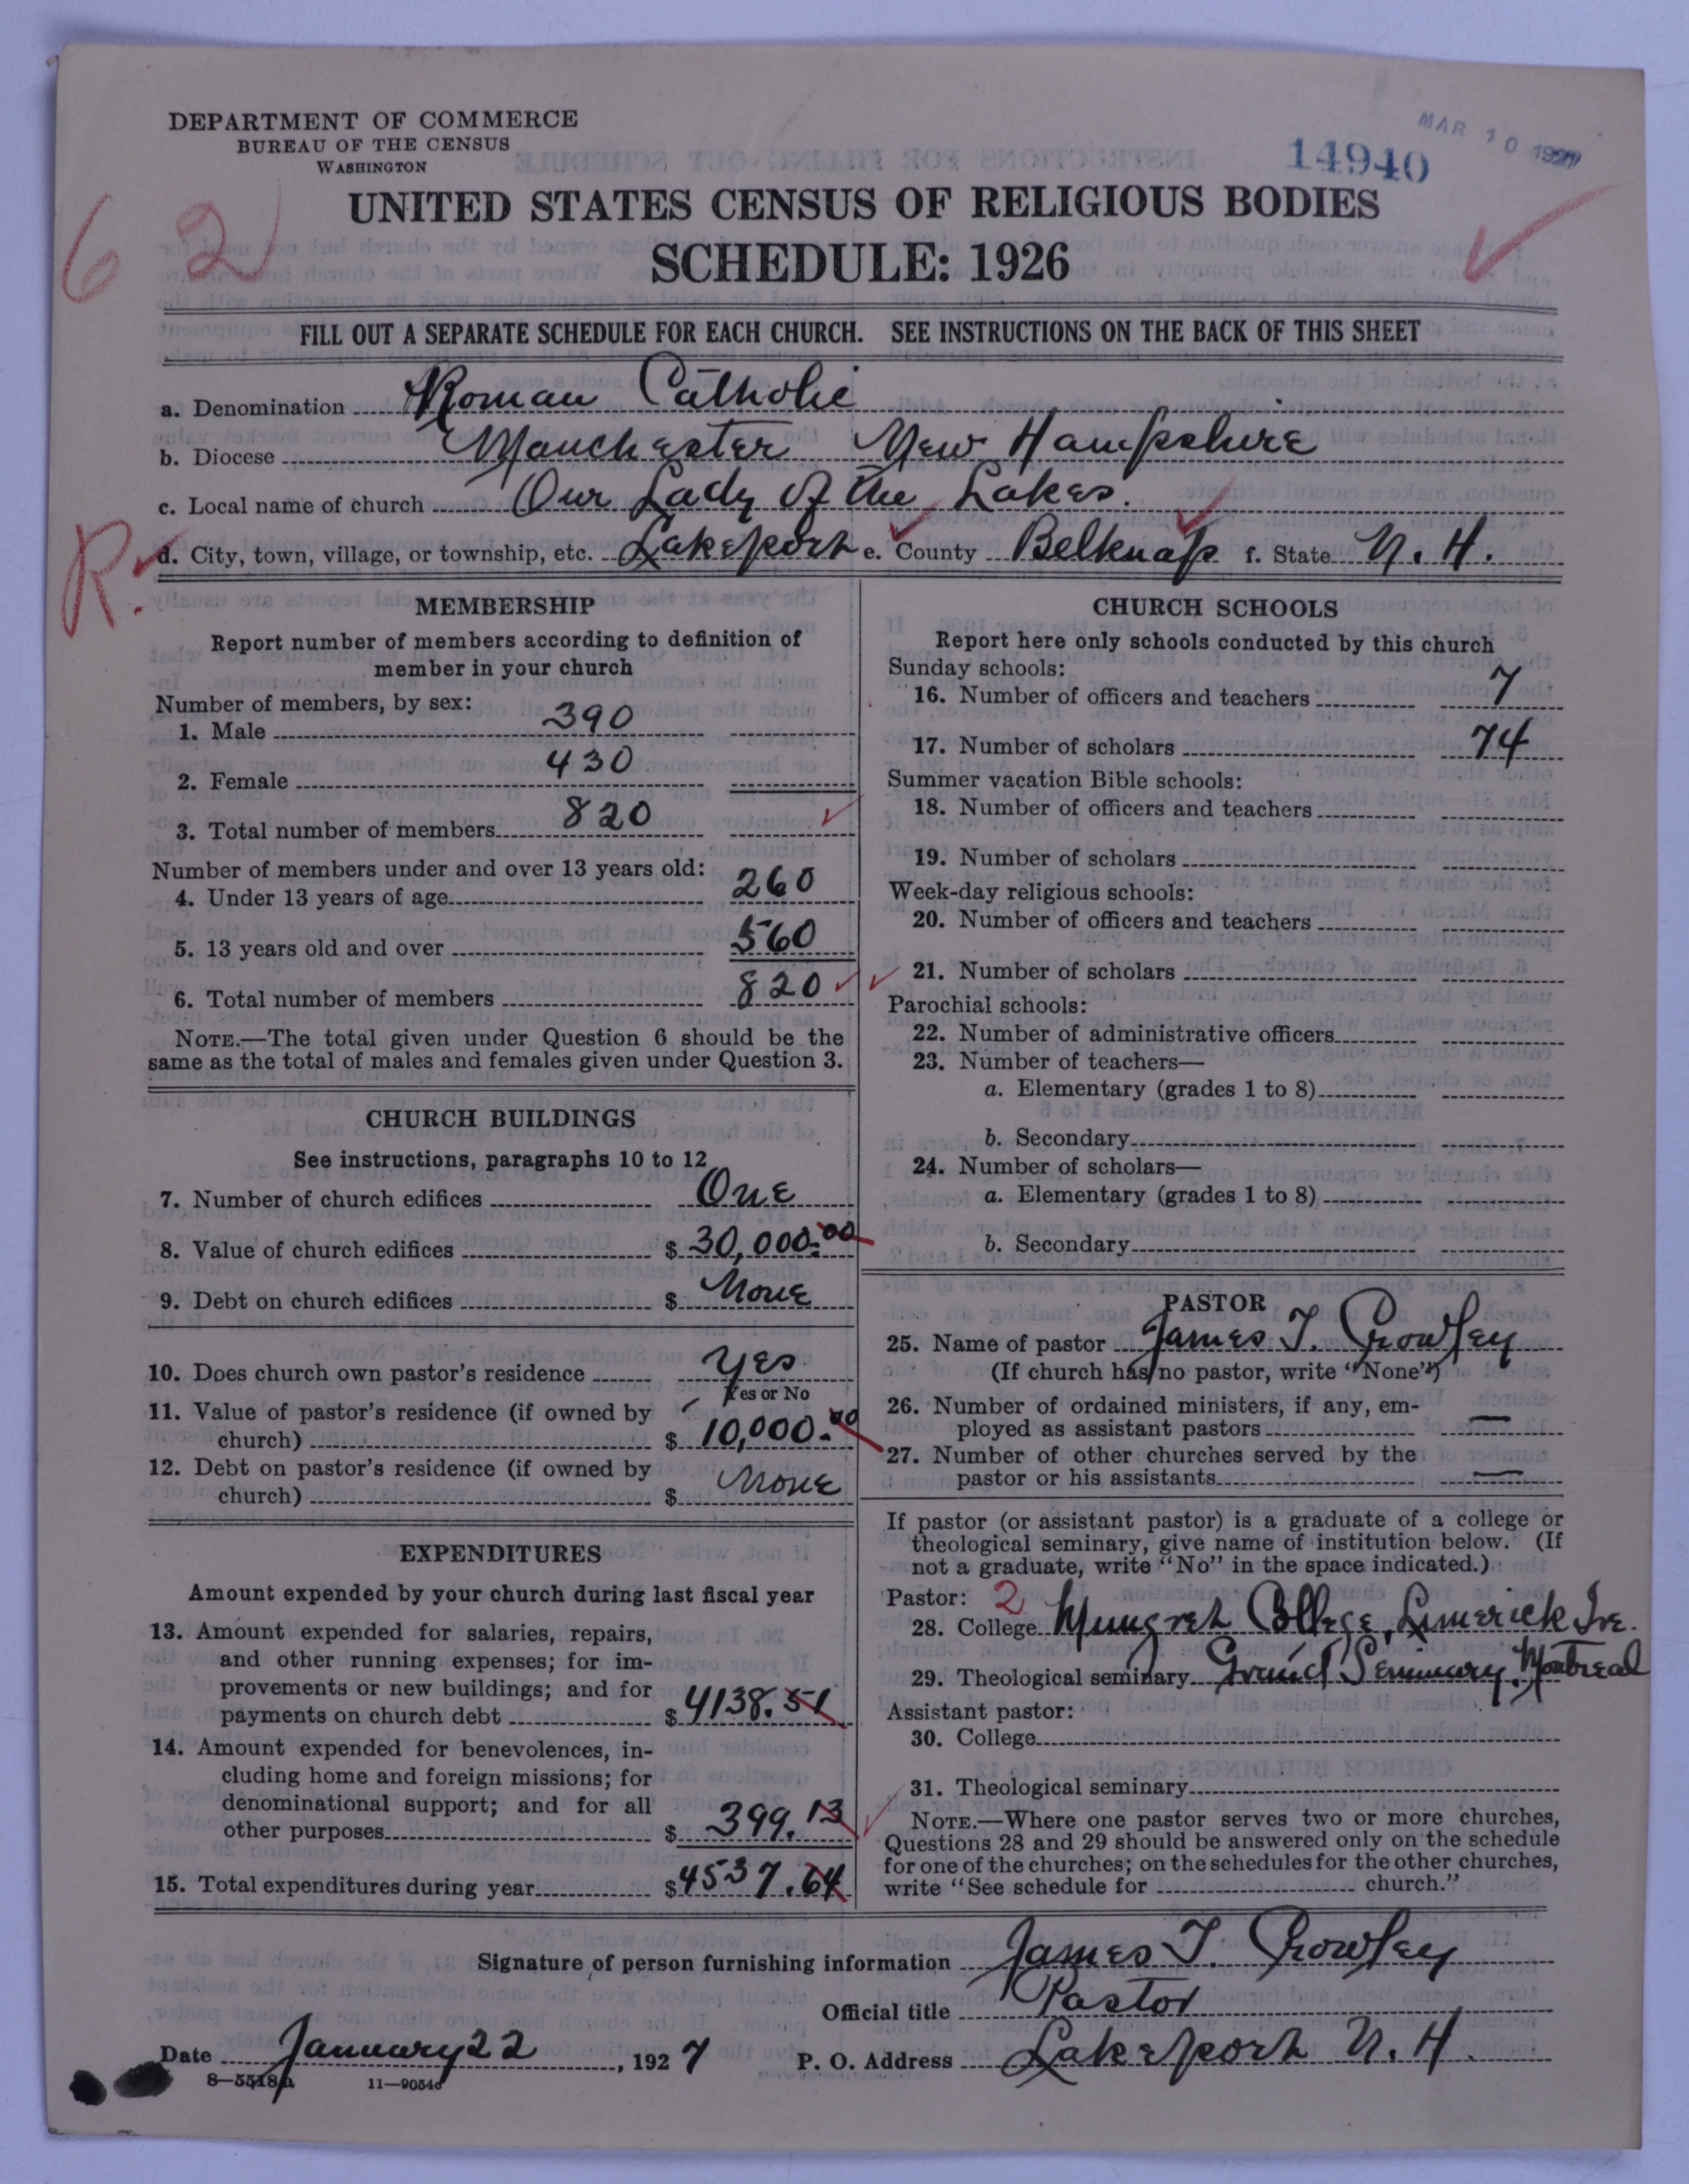 DEPARTMENT OF COMMERCE
BUREAU OF THE CENSUS
WASHINGTON
MAR 10 1927
14940
UNITED STATES CENSUS OF RELIGIOUS BODIES
SCHEDULE: 1926
62
FILL OUT A SEPARATE SCHEDULE FOR EACH CHURCH. SEE INSTRUCTIONS ON THE BACK OF THIS SHEET
a. Denomination Roman Catholic
b. Diocese Manchester New Hampshire
c. Local name of church Our Lady of the Lakes.
R. d. City, town, village, or township, etc. Lakeport e. County Belknap f. State N. H.
MEMBERSHIP
Report number of members according to definition of
member in your church
Number of members, by sex:
1. Male 390
2. Female 430
3. Total number of members 820
Number of members under and over 13 years old:
4. Under 13 years of age 260
5. 13 years old and over 560
6. Total number of members 820
NOTE.—The total given under Question 6 should be the
same as the total of males and females given under Question 3.
CHURCH BUILDINGS
See instructions, paragraphs 10 to 12
7. Number of church edifices One
8. Value of church edifices $ 30,000.00
9. Debt on church edifices $ None
10. Does church own pastor's residence Yes
Yes or No
11. Value of pastor's residence (if owned by
church) $ 10,000.00
12. Debt on pastor's residence (if owned by
church) $ None
EXPENDITURES
Amount expended by your church during last fiscal year
13. Amount expended for salaries, repairs,
and other running expenses; for im-
provements or new buildings; and for
payments on church debt $ 4138.51
14. Amount expended for benevolences, in-
cluding home and foreign missions; for
denominational support; and for all
other purposes $ 399.13
15. Total expenditures during year $ 4537.64
CHURCH SCHOOLS
Report here only schools conducted by this church
Sunday schools:
16. Number of officers and teachers 7
17. Number of scholars 74
Summer vacation Bible schools:
18. Number of officers and teachers
19. Number of scholars
Week-day religious schools:
20. Number of officers and teachers
21. Number of scholars
Parochial schools:
22. Number of administrative officers
23. Number of teachers—
a. Elementary (grades 1 to 8)
b. Secondary
24. Number of scholars—
a. Elementary (grades 1 to 8)
b. Secondary
PASTOR
25. Name of pastor James T. Crowley
(If church has no pastor, write "None")
26. Number of ordained ministers, if any, em-
ployed as assistant pastors —
27. Number of other churches served by the
pastor or his assistants —
If pastor (or assistant pastor) is a graduate of a college or
theological seminary, give name of institution below. (If
not a graduate, write "No" in the space indicated.)
Pastor: 2
28. College Mungret College, Limerick Ire.
29. Theological seminary Grand Seminary, Montreal
Assistant pastor:
30. College
31. Theological seminary
NOTE.—Where one pastor serves two or more churches,
Questions 28 and 29 should be answered only on the schedule
for one of the churches; on the schedules for the other churches,
write "See schedule for church."
Signature of person furnishing information James T. Crowley
Official title Pastor
Date January 22, 1927 P. O. Address Lakeport N. H.
8—5518a 11—9054